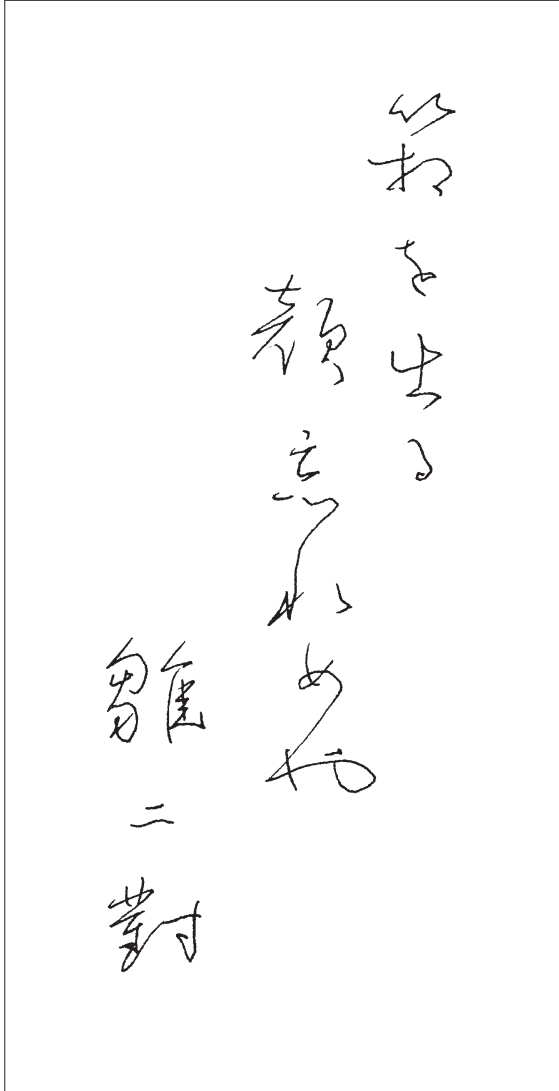 箱を出る
顔忘れめや
雛二對